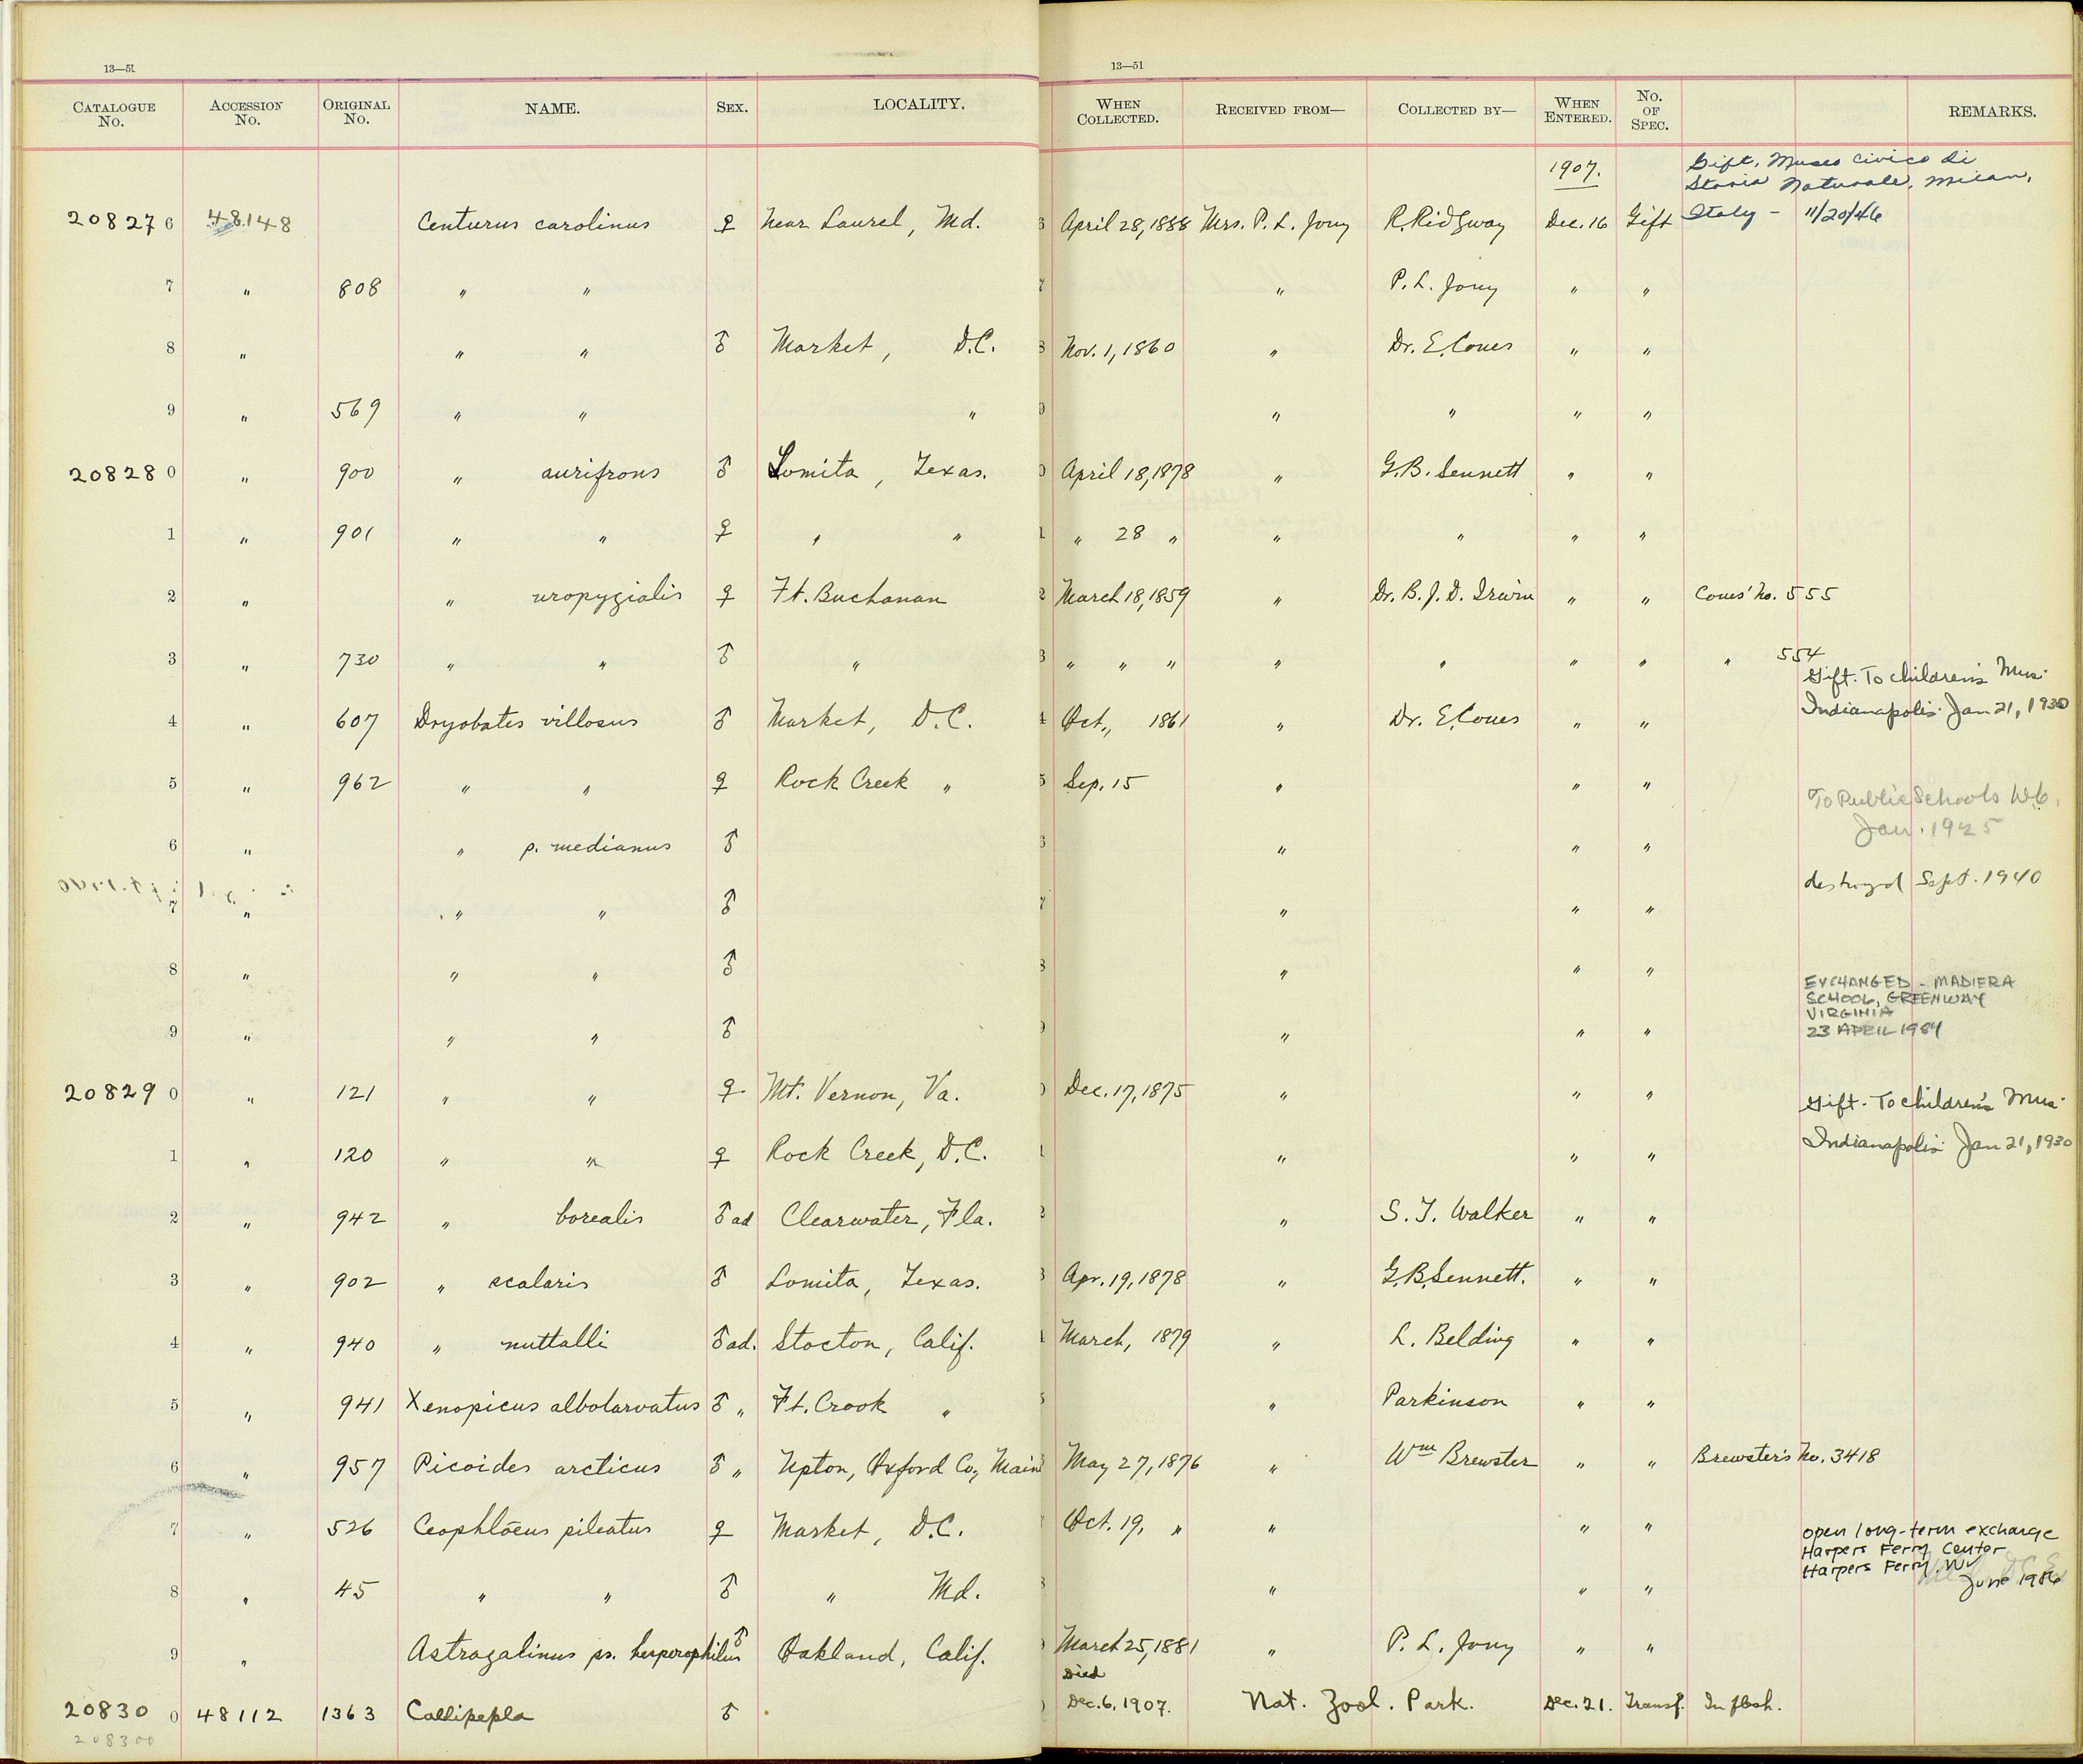 13—51 13—51
CATALOGUE No. ACCESSION No. ORIGINAL No. NAME. SEX. LOCALITY. WHEN COLLECTED. RECEIVED FROM— COLLECTED BY— WHEN ENTERED. No. OF SPEC. REMARKS.
1907. Gift. Museo Civico di
Storia Naturale, Milan,
Italy - 11/20/46
20827 6 48148 Centurus carolinus ♀ Near Laurel, Md. April 28, 1888 Mrs. P. L. Jouy R. Ridgway Dec. 16 Gift
7 " 808 " " " P. L. Jouy " "
8 " " " ♂ Market, D.C. Nov. 1, 1860 " Dr. E. Coues " "
9 " 569 " " " " " " "
20828 0 " 900 " aurifrons ♂ Lomita, Texas. April 18, 1878 " G. B. Sennett " "
1 " 901 " " ♀ " " " 28 " " " " "
2 " " uropygialis ♀ Ft. Buchanan March 18, 1859 " Dr. B. J. D. Irwin " " Coues' No. 555
3 " 730 " " ♂ " " " " " " " " " 554
Gift. To Children's Mus.
Indianapolis. Jan 21, 1930
4 " 607 Dryobates villosus ♂ Market, D.C. Oct., 1861 " Dr. E. Coues " "
5 " 962 " " ♀ Rock Creek " Sep. 15 " " "
To Public Schools D.C.
Jan. 1925
6 " " p. medianus ♂ " " "
destroyed Sept. 1940
7 " " " ♂ " " "
8 " " " ♂ " " "
EXCHANGED - MADIERA
SCHOOL, GREENWAY
VIRGINIA
23 APRIL 1984
9 " " " ♂ " " "
20829 0 " 121 " " ♀ Mt. Vernon, Va. Dec. 17, 1875 " " "
Gift. To Children's Mus.
Indianapolis. Jan 21, 1930
1 " 120 " " ♀ Rock Creek, D.C. " " "
2 " 942 " borealis ♂ ad Clearwater, Fla. " S. T. Walker " "
3 " 902 " scalaris ♂ Lomita, Texas. Apr. 19, 1878 " G. B. Sennett. " "
4 " 940 " nuttalli ♂ ad. Stocton, Calif. March, 1879 " L. Belding " "
5 " 941 Xenopicus albolarvatus ♂ " Ft. Crook " " Parkinson " "
6 " 957 Picoides arcticus ♂ " Upton, Oxford Co., Main May 27, 1876 " Wm Brewster " " Brewster's No. 3418
7 " 526 Ceophlœus pileatus ♀ Market, D.C. Oct. 19, " " " "
open long-term exchange
Harpers Ferry Center
Harpers Ferry, WV
June 1986
8 " 45 " " ♂ " Md. " " "
9 " Astragalinus ps. hesperophilus ♂ Oakland, Calif. March 25, 1881 " P. L. Jouy " "
Died
20830 0 48112 1363 Callipepla ♂ Dec. 6, 1907. Nat. Zool. Park. Dec. 21. Transf. In flesh.
208300